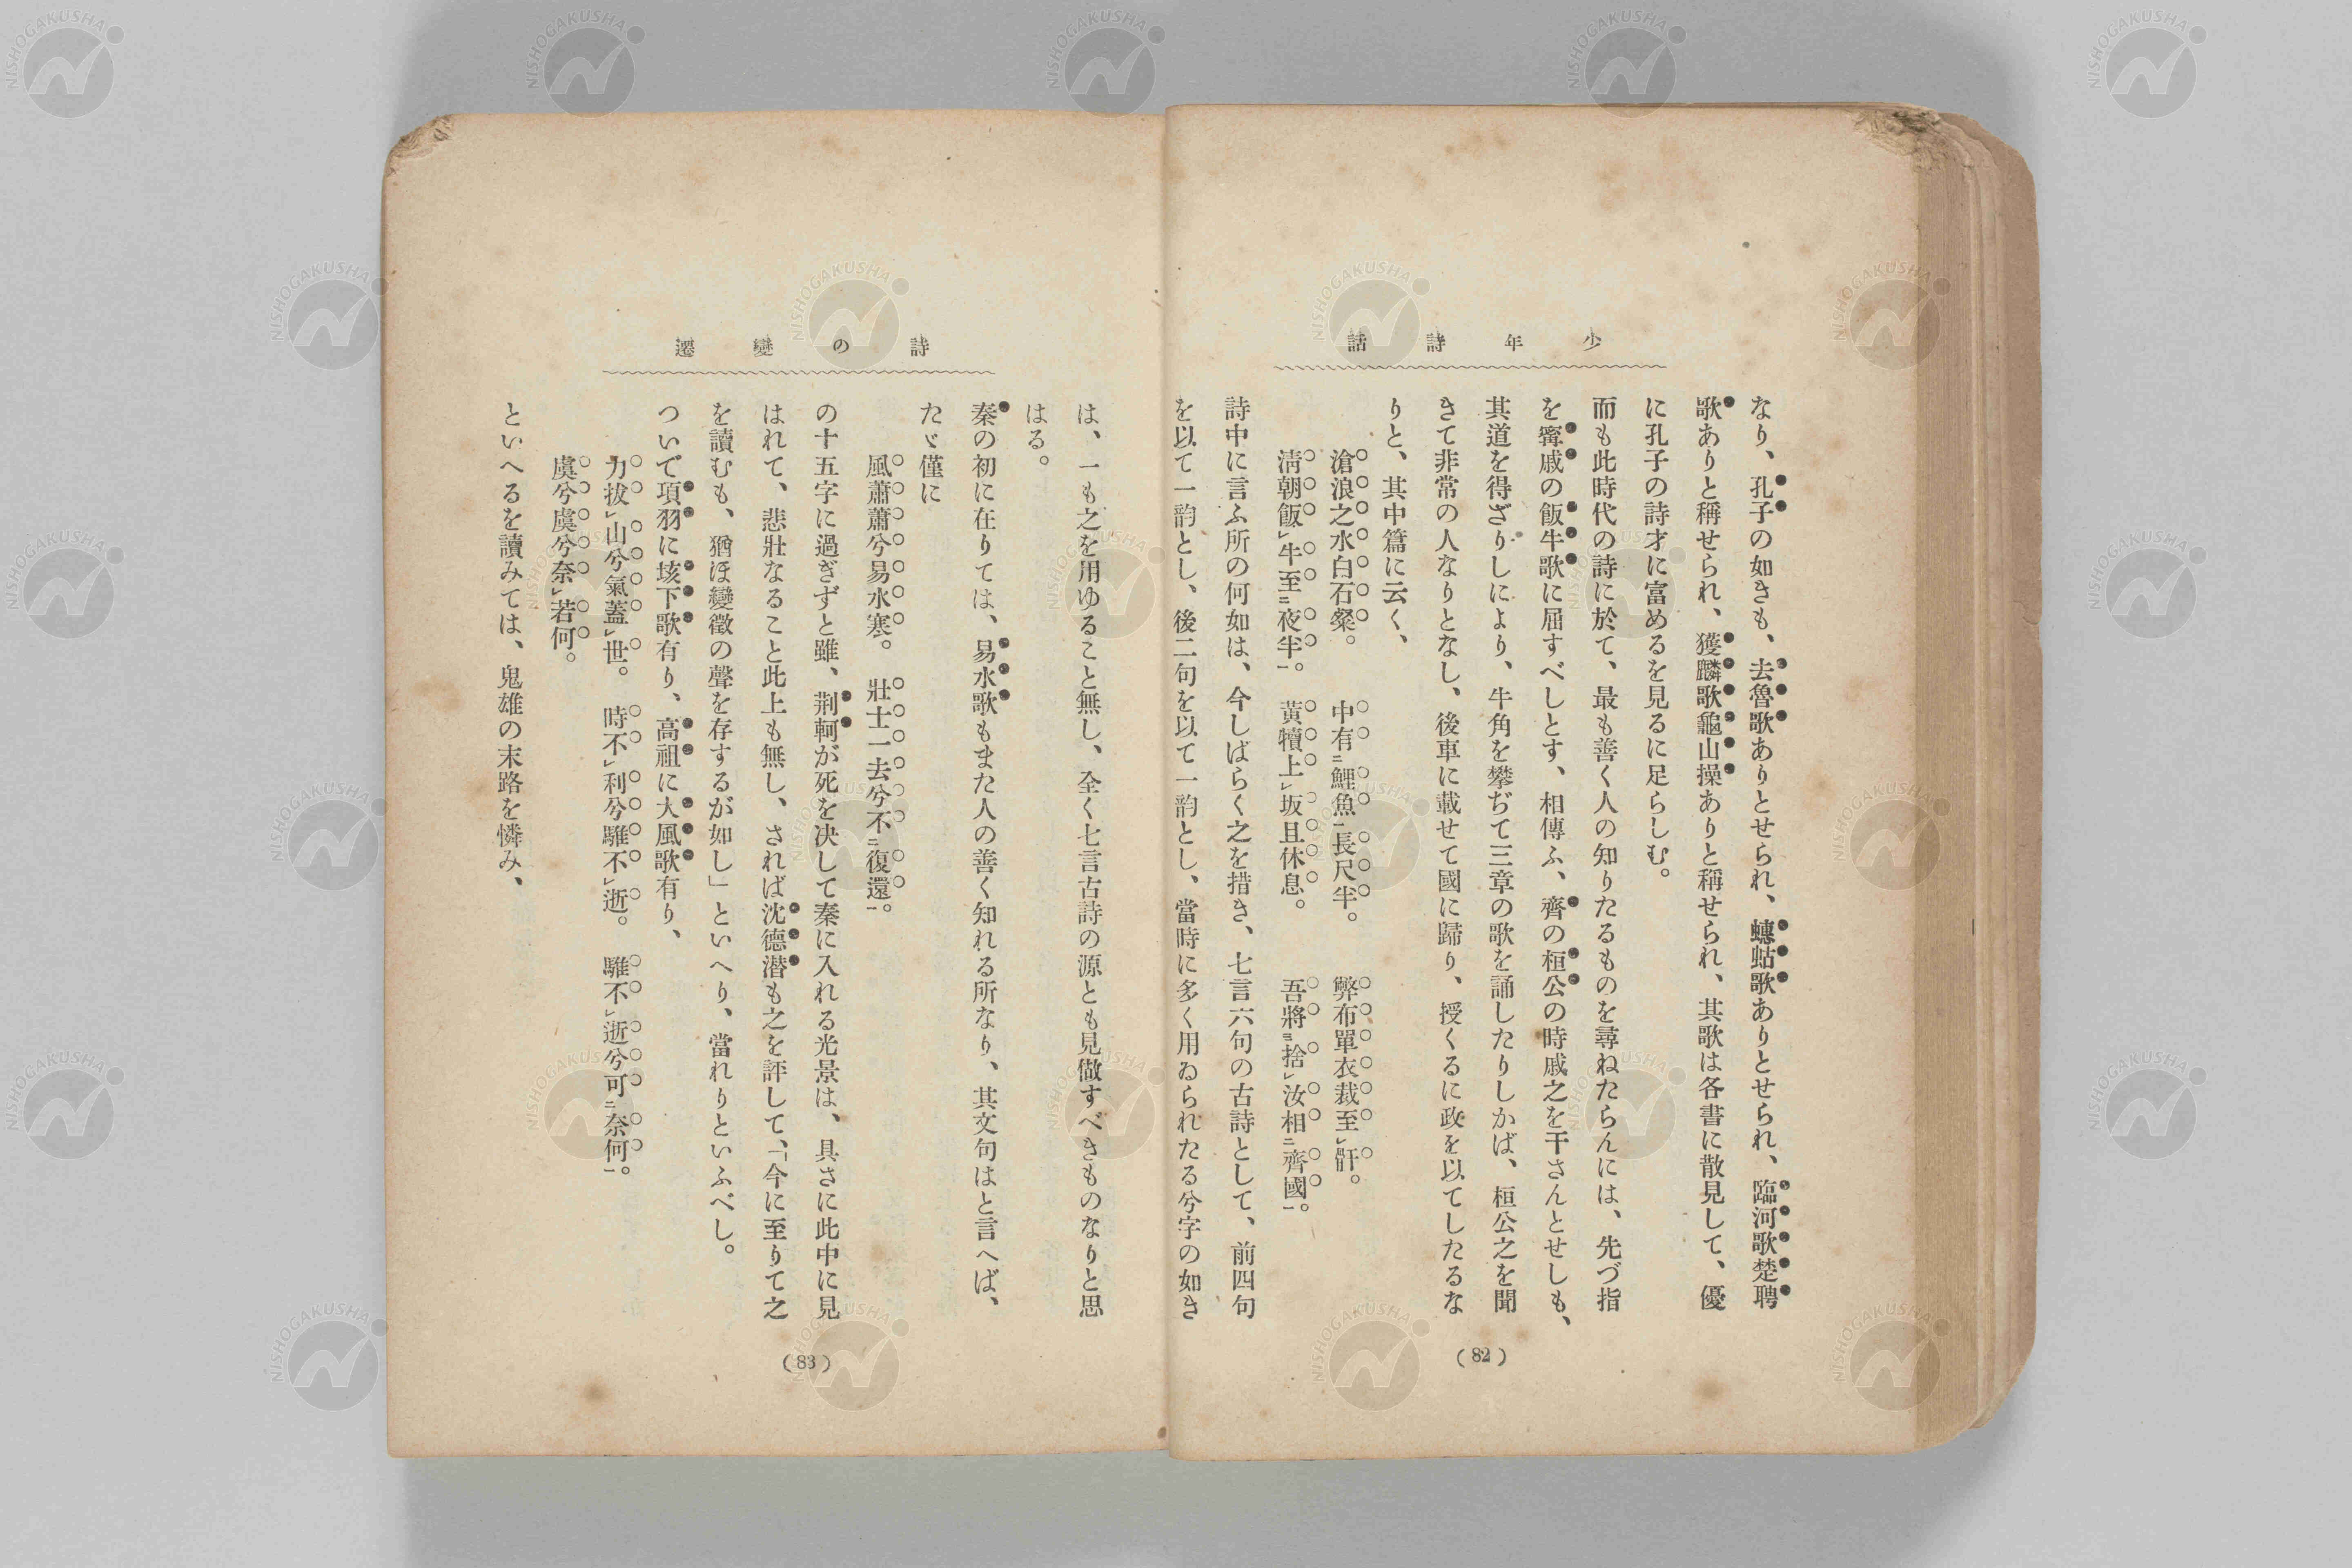 少年詩話
なり、孔子の如きも、去魯歌ありとせられ、蟪蛄歌ありとせられ、臨河歌楚聘
歌ありと稱せられ、獲麟歌龜山操ありと稱せられ、其歌は各書に散見して、優
に孔子の詩才に富めるを見るに足らしむ。
而も此時代の詩に於て、最も善く人の知りたるものを尋ねたらんには、先づ指
を甯戚の飯牛歌に屈すべしとす、相傳ふ、齊の桓公の時戚之を干さんとせしも、
其道を得ざりしにより、牛角を攀ぢて三章の歌を誦したりしかば、桓公之を聞
きて非常の人なりとなし、後車に載せて國に歸り、授くるに政を以てしたるな
りと、其中篇に云く、
滄浪之水白石粲。 中有㆓鯉魚㆒長尺半。 弊布單衣裁至㆑骭。
淸朝飯㆑牛至㆓夜半㆒。 黃犢上㆑坂且休息。 吾將㆘捨㆑汝相㆗齊國㆖。
詩中に言ふ所の何如は、今しばらく之を措き、七言六句の古詩として、前四句
を以て一韵とし、後二句を以て一韵とし、當時に多く用ゐられたる兮字の如き
(82)
詩の變遷
は、一も之を用ゆること無し、全く七言古詩の源とも見做すべきものなりと思
はる。
秦の初に在りては、易水歌もまた人の善く知れる所なり、其文句はと言へば、
たゞ僅に
風蕭蕭兮易水寒。 壯士一去兮不㆓復還㆒。
の十五字に過ぎずと雖、荆軻が死を決して秦に入れる光景は、具さに此中に見
はれて、悲壯なること此上も無し、されば沈德潜も之を評して、「今に至りて之
を讀むも、猶ほ變徵の聲を存するが如し」といへり、當れりといふべし。
ついで項羽に垓下歌有り、高祖に大風歌有り、
力拔㆑山兮氣蓋㆑世。 時不㆑利兮騅不㆑逝。 騅不㆑逝兮可㆓奈何㆒。
虞兮虞兮奈㆑若何。
といへるを讀みては、鬼雄の末路を憐み、
(83)
NISHOGAKUSHA